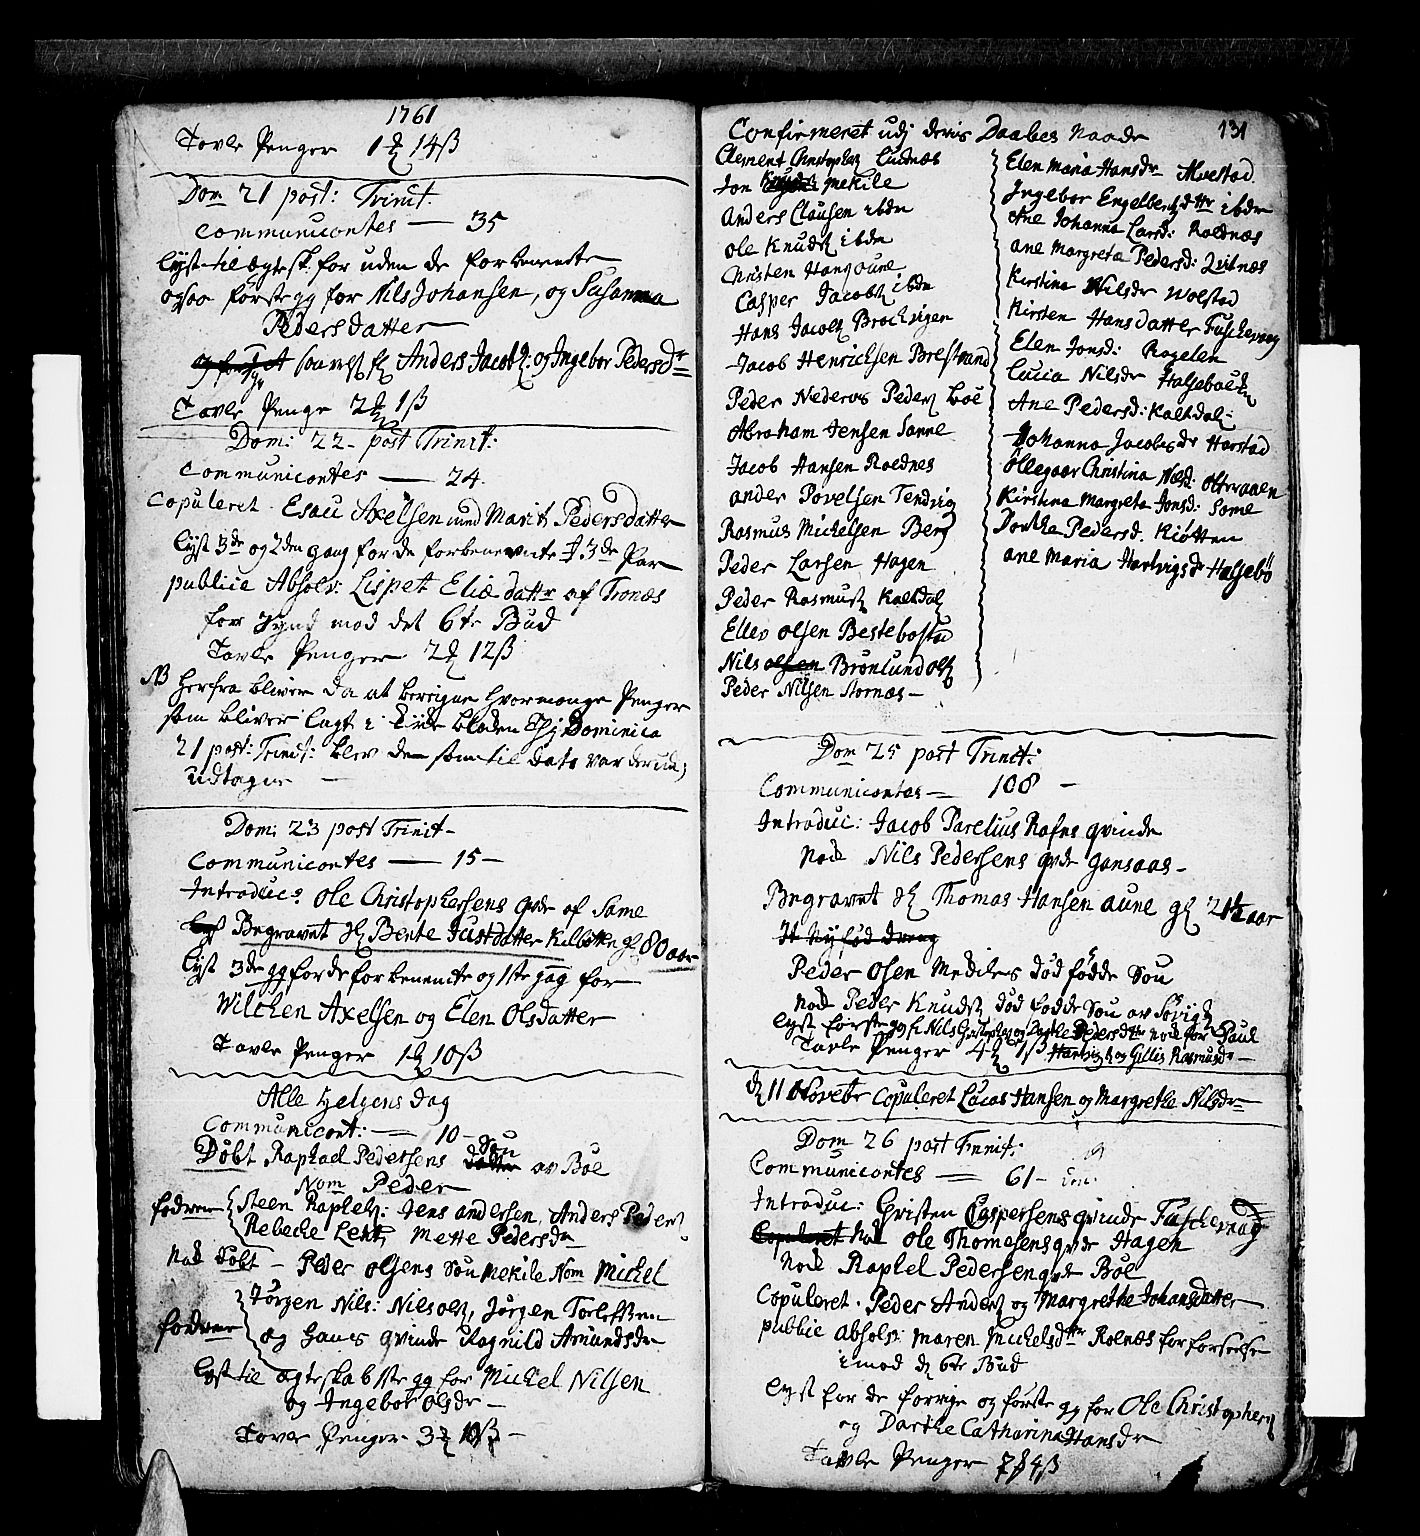 1761
Tavle Penger 1 14ß
Dom 21 post: Trinit.
Communicontes — 35
lyst til ægtesk. for uden de forbenente
ogsaa første gg for Nils Johansen, og Susanna
Pedersdatter
Anders Jacobs: og Ingebor Pedersdr
Tavle Penge 2 1ß
Dom: 22 post Trinit:
Communicontes — 24.
Copuleret. Esau Axelsen med Marit Pedersdatter
lyst 3de og 2den gang for de forbenevnte 3de Par
publice Absolv: Lispett Eliæ dattr af Tronæs
for Synd mod det 6te Bud
Tavle Penger 2 12ß
NB herfra bliver da at beregne hvormange Penger
som bliver lagt i Dominica
21 post: Trinit: blev den som til dato var derudj
udtagne —
Dom: 23 post Trinit—
Communicontes — 15—
Introduc: Ole Christophersens qvde af Same
Begravet Bente Justdatter Kilbotten gl 80 aar
lyst 3de gg for de forbenente og 1ste gag for
Wilchen Axelsen og Elen Olsdatter
Tavle Penger 1 10ß
Alle Helgens Dag
Communicont: — 10—
Søn
Døbt Raphael Pedersens datter av Bøe
Nom Peder
fadrene Steen Raplels: Jens andersen, Anders Peders
Rebecke Lents Mette Pedersdr
Nok Døbt — Peder Olsens Søn Mekile Nom Michel
Jørgen Nils: Nils Ols, Jørgen Torlefsen
fadrene og Hans qvinde Ragnild Amundsdr
lyst til ægteskab 1ste gg for Michel Nilsen
og Ingebor Olsdr —
Tavle Penger 3 —
131
Confirmeret udj deris Daabes Naade
Clement Christophers Lundnæs
Jon Knuds Mekile
Anders Clausen ibdn
Ole Knuds ibdn
Christen Hans Aune
Casper Jacobs ibdn
Hans Jacobs Brochvigen
Jacob Henrichsen Brestrand
Peder Nederos Peders Bøe
Abraham Jensen Sanne
Jacob Hansen Roednes
ander Povelsen Tendvig
Rasmus Michelsen Berg
Peder Larsen Hagen
Peder Rasmus Kaltdal
Ellev Olsen Bestebostad
Nils Olsen Brønlund Ols
Peder Nilsen Stornæs —
Elen Maria Hansdr Moestad
Ingebor Engelbertsdttr ibdn
Ane Johanna Larsd: Roldnæs
ane Margreta Pedersd: Qvitnæs
Kirstina Nilsdr Wolstad
Kirsten Hansdatter Fuschevaag
Elen Jonsd: Rogelen
Lucia Nilsdr Halsebøen
Ane Pedersd: Kaltdal:
Johanna Jacobsdr Harstad
Ollegaar Christina Nilsd: Otteraaen
Kirstina Margreta Jonsd: Some
Dorthe Pedersd. Kiøtten
ane Maria Hartvigsdr Halsebø
Dom 25 post Trinit:
Communicontes — 108 —
Introduc: Jacob Parelius Rafns qvinde
Nok Nils Pedersens qvde Gansaas —
Begravet Thomas Hansen aune gl 21½ aar
It nyfød dreng
Peder Olsen Mechiles død fødde Søn
nok Peder Knuds død fødde Søn av Sørvigs
lyst første gg f. Nils og Dorthe Pedersdttr nok for Paul
Tavle Penger 4 1ß Hartvigs og Gillis Rasmusdr —
d 11 Novebr Copuleret Lucas Hansen og Margrethe Nilsdr —
Dom 26 post Trinit:
Communicontes — 61 —
Introduc: Christen Caspersens qvinde Fuschevaag
Copuleret Nok Ole Thomesens qvde Hagen
Nok Raphel Pedersen qvde Bøe
Copuleret. Peder Anders og Margrethe Johansdatter —
public absolv: Maren Michelsdttr Rolnæs for forseelse
imod d 6te Bud
lyst for de forrige og første gg for Ole Christophers
og Dorthe Catharina Hansdr
Tavle Penger 4ß